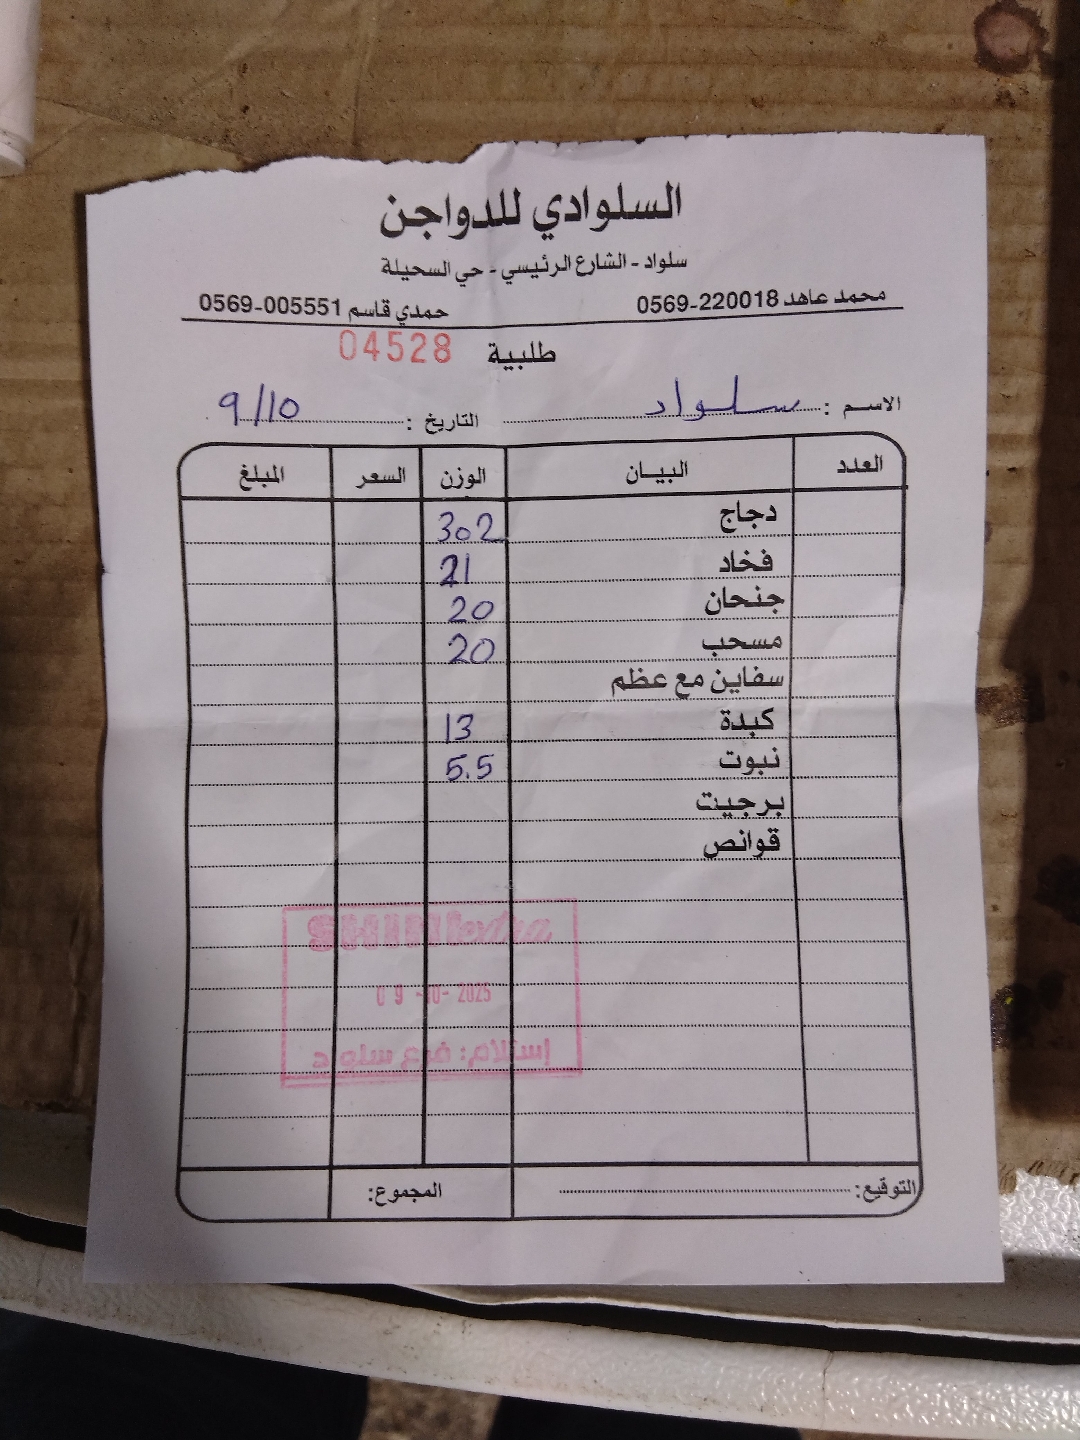 السلوادي للدواجن
سلواد - الشارع الرئيسي - حي السحيلة
محمد عاهد 0569-220018 حمدي قاسم 0569-005551
طلبية 04528
الاسم : سلواد التاريخ : 9/10
العدد البيـان الوزن السعر المبلغ
دجاج 302
فخاد 21
جنحان 20
مسحب 20
سفاين مع عظم
كبدة 13
نبوت 5.5
برجيت
قوانص
09 -10- 2025
إستلام: فرع سلواد
التوقيع: المجموع: